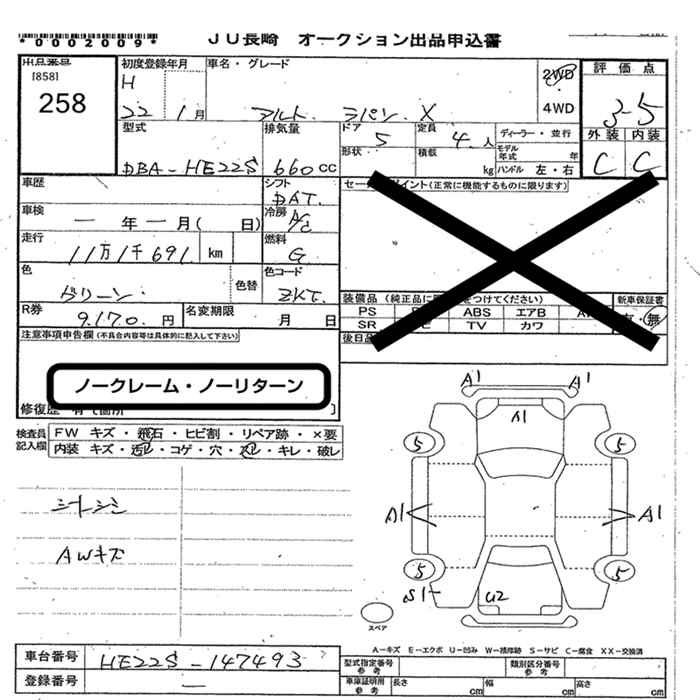 *0002009*
JU長崎 オークション出品申込書
出品番号
[858]
258
初度登録年月
H
22 1月
車名・グレード
アルト ラパン X
2WD
4WD
評価点
3-5
外装 内装
C C
型式
DBA-HE22S
排気量
660cc
ドア
5
定員
4人
ディーラー・並行
形状
積載
kg
モデル年式 年
ハンドル 左・右
車歴
シフト
DAT.
車検
一 年 一 月( 日)
冷房
A/C
走行
11万1千691 km
燃料
G
色
グリーン
色替
色コード
ZKT.
R券
9,170 円
名変期限
月 日
装備品(純正品に をつけてください)
新車保証書
PS ABS エアB
SR TV カワ
有・無
注意事項申告欄(不具合内容等は具体的に記入して下さい)
ノークレーム・ノーリターン
検査員記入欄
FW キズ・飛石・ヒビ割・リペア跡・×要
内装 キズ・汚レ・コゲ・穴・スレ・キレ・破レ
シートシミ
AWキズ
A1 A1
A1
5 5
A1 A1
5 5
S1 U2
スペア
A-キズ E-エクボ U-凹み W-補修跡 S-サビ C-腐食 XX-交換済
車台番号
HE22S-147493
登録番号
一
型式指定番号参考
類別区分番号参考
車庫証明用参考
長さ cm 幅 cm 高さ cm